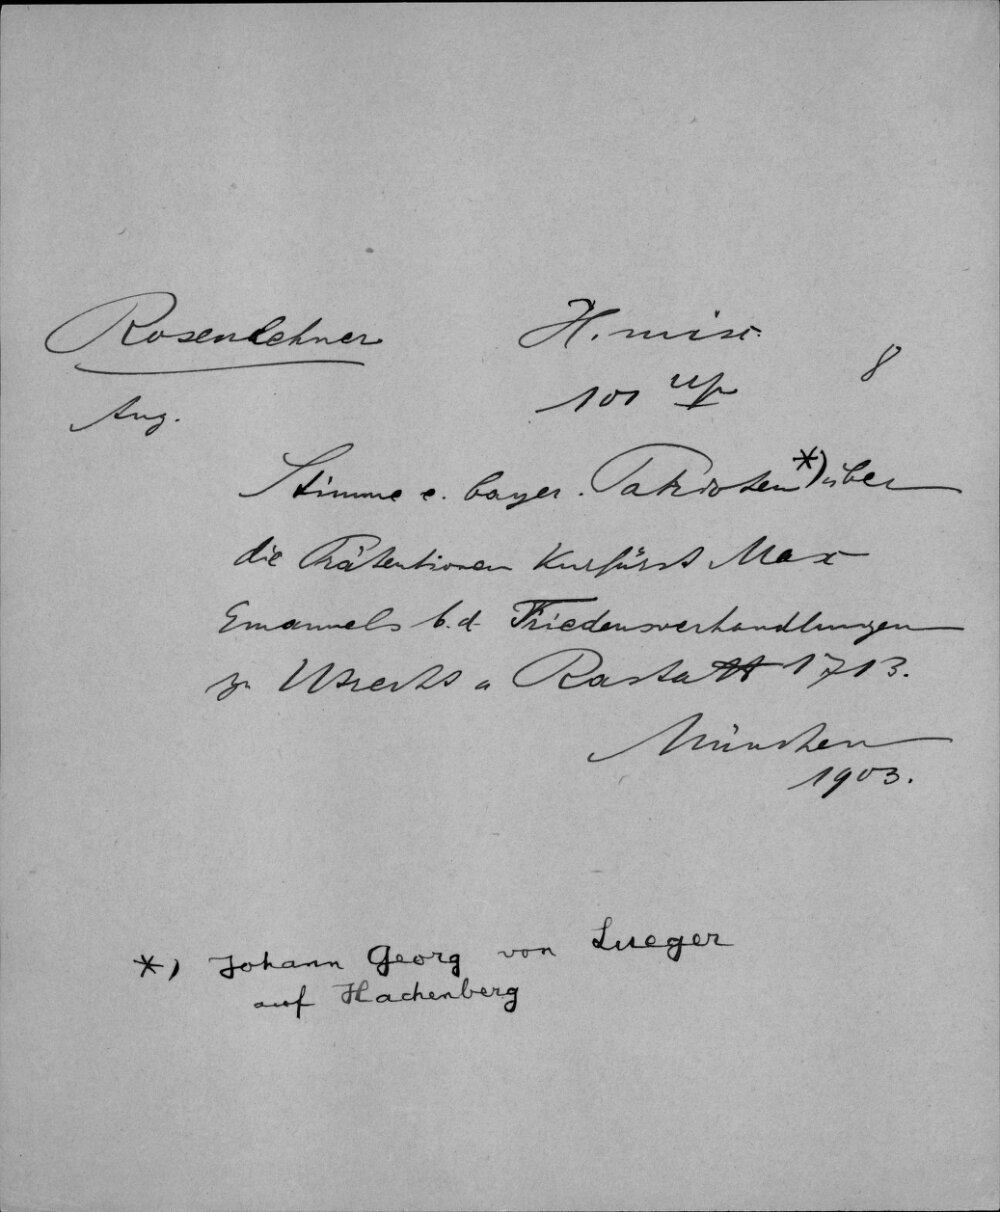 Rosenlehner H. misc.
Aug. 101 up 8
Stimme e. bayer. Patrioten *) über
die Prätentionen Kurfürst Max
Emanuels b. d. Friedensverhandlungen
zu Utrecht u Rastatt 1713.
München
1903.
*) Johann Georg von Lueger
auf Hachenberg